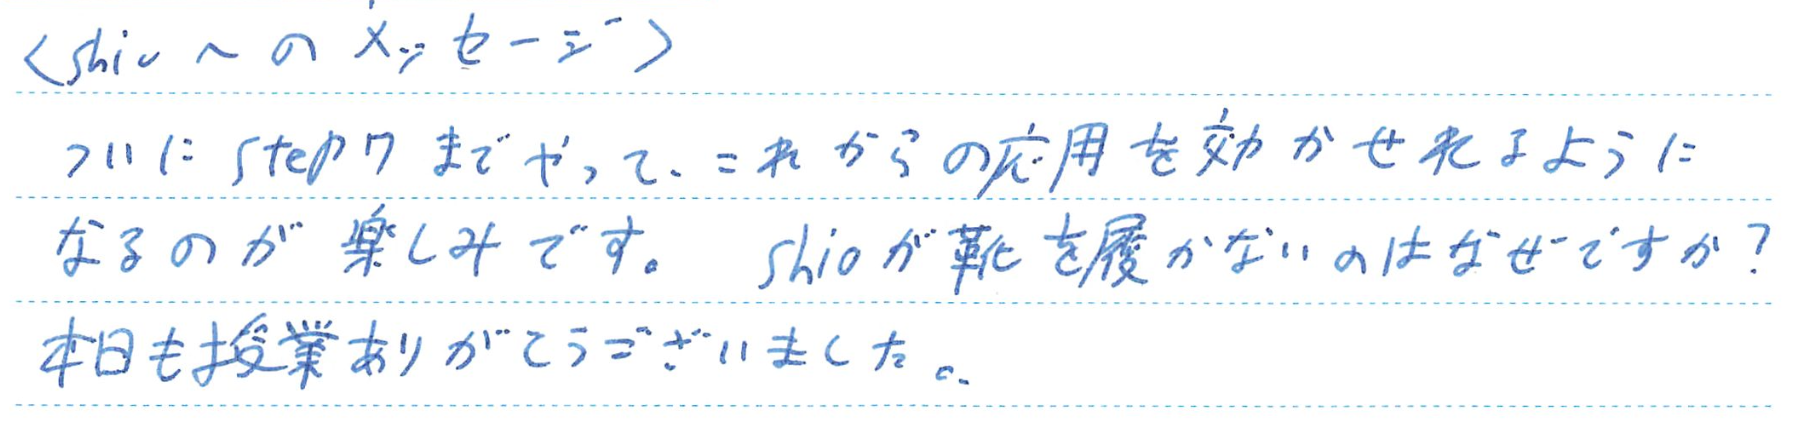 <shioへのメッセージ>
ついにstep7までやって、これからの応用を効かせれるように
なるのが楽しみです。 shioが靴を履かないのはなぜですか？
本日も授業ありがとうございました。